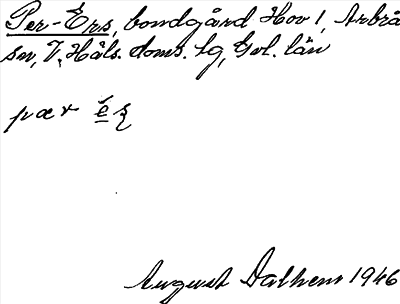 Per-Ers, bondgård Hov 1, Arbrå
sn, V. Häls. doms. lg, Gvl. län
pær é̱ʂ
August Dalhem 1946